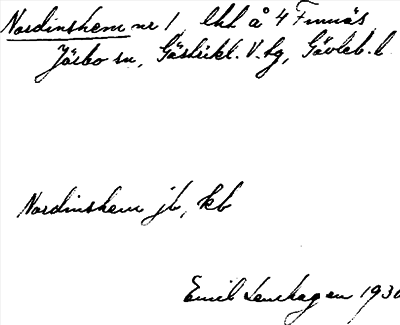 Nordinshem nr 1, lht å 4 Finnäs,
Järbo sn, Gästrikl. V. tg, Gävleb. l
Nordinshem jb, kb
Emil Lenhagen 1930